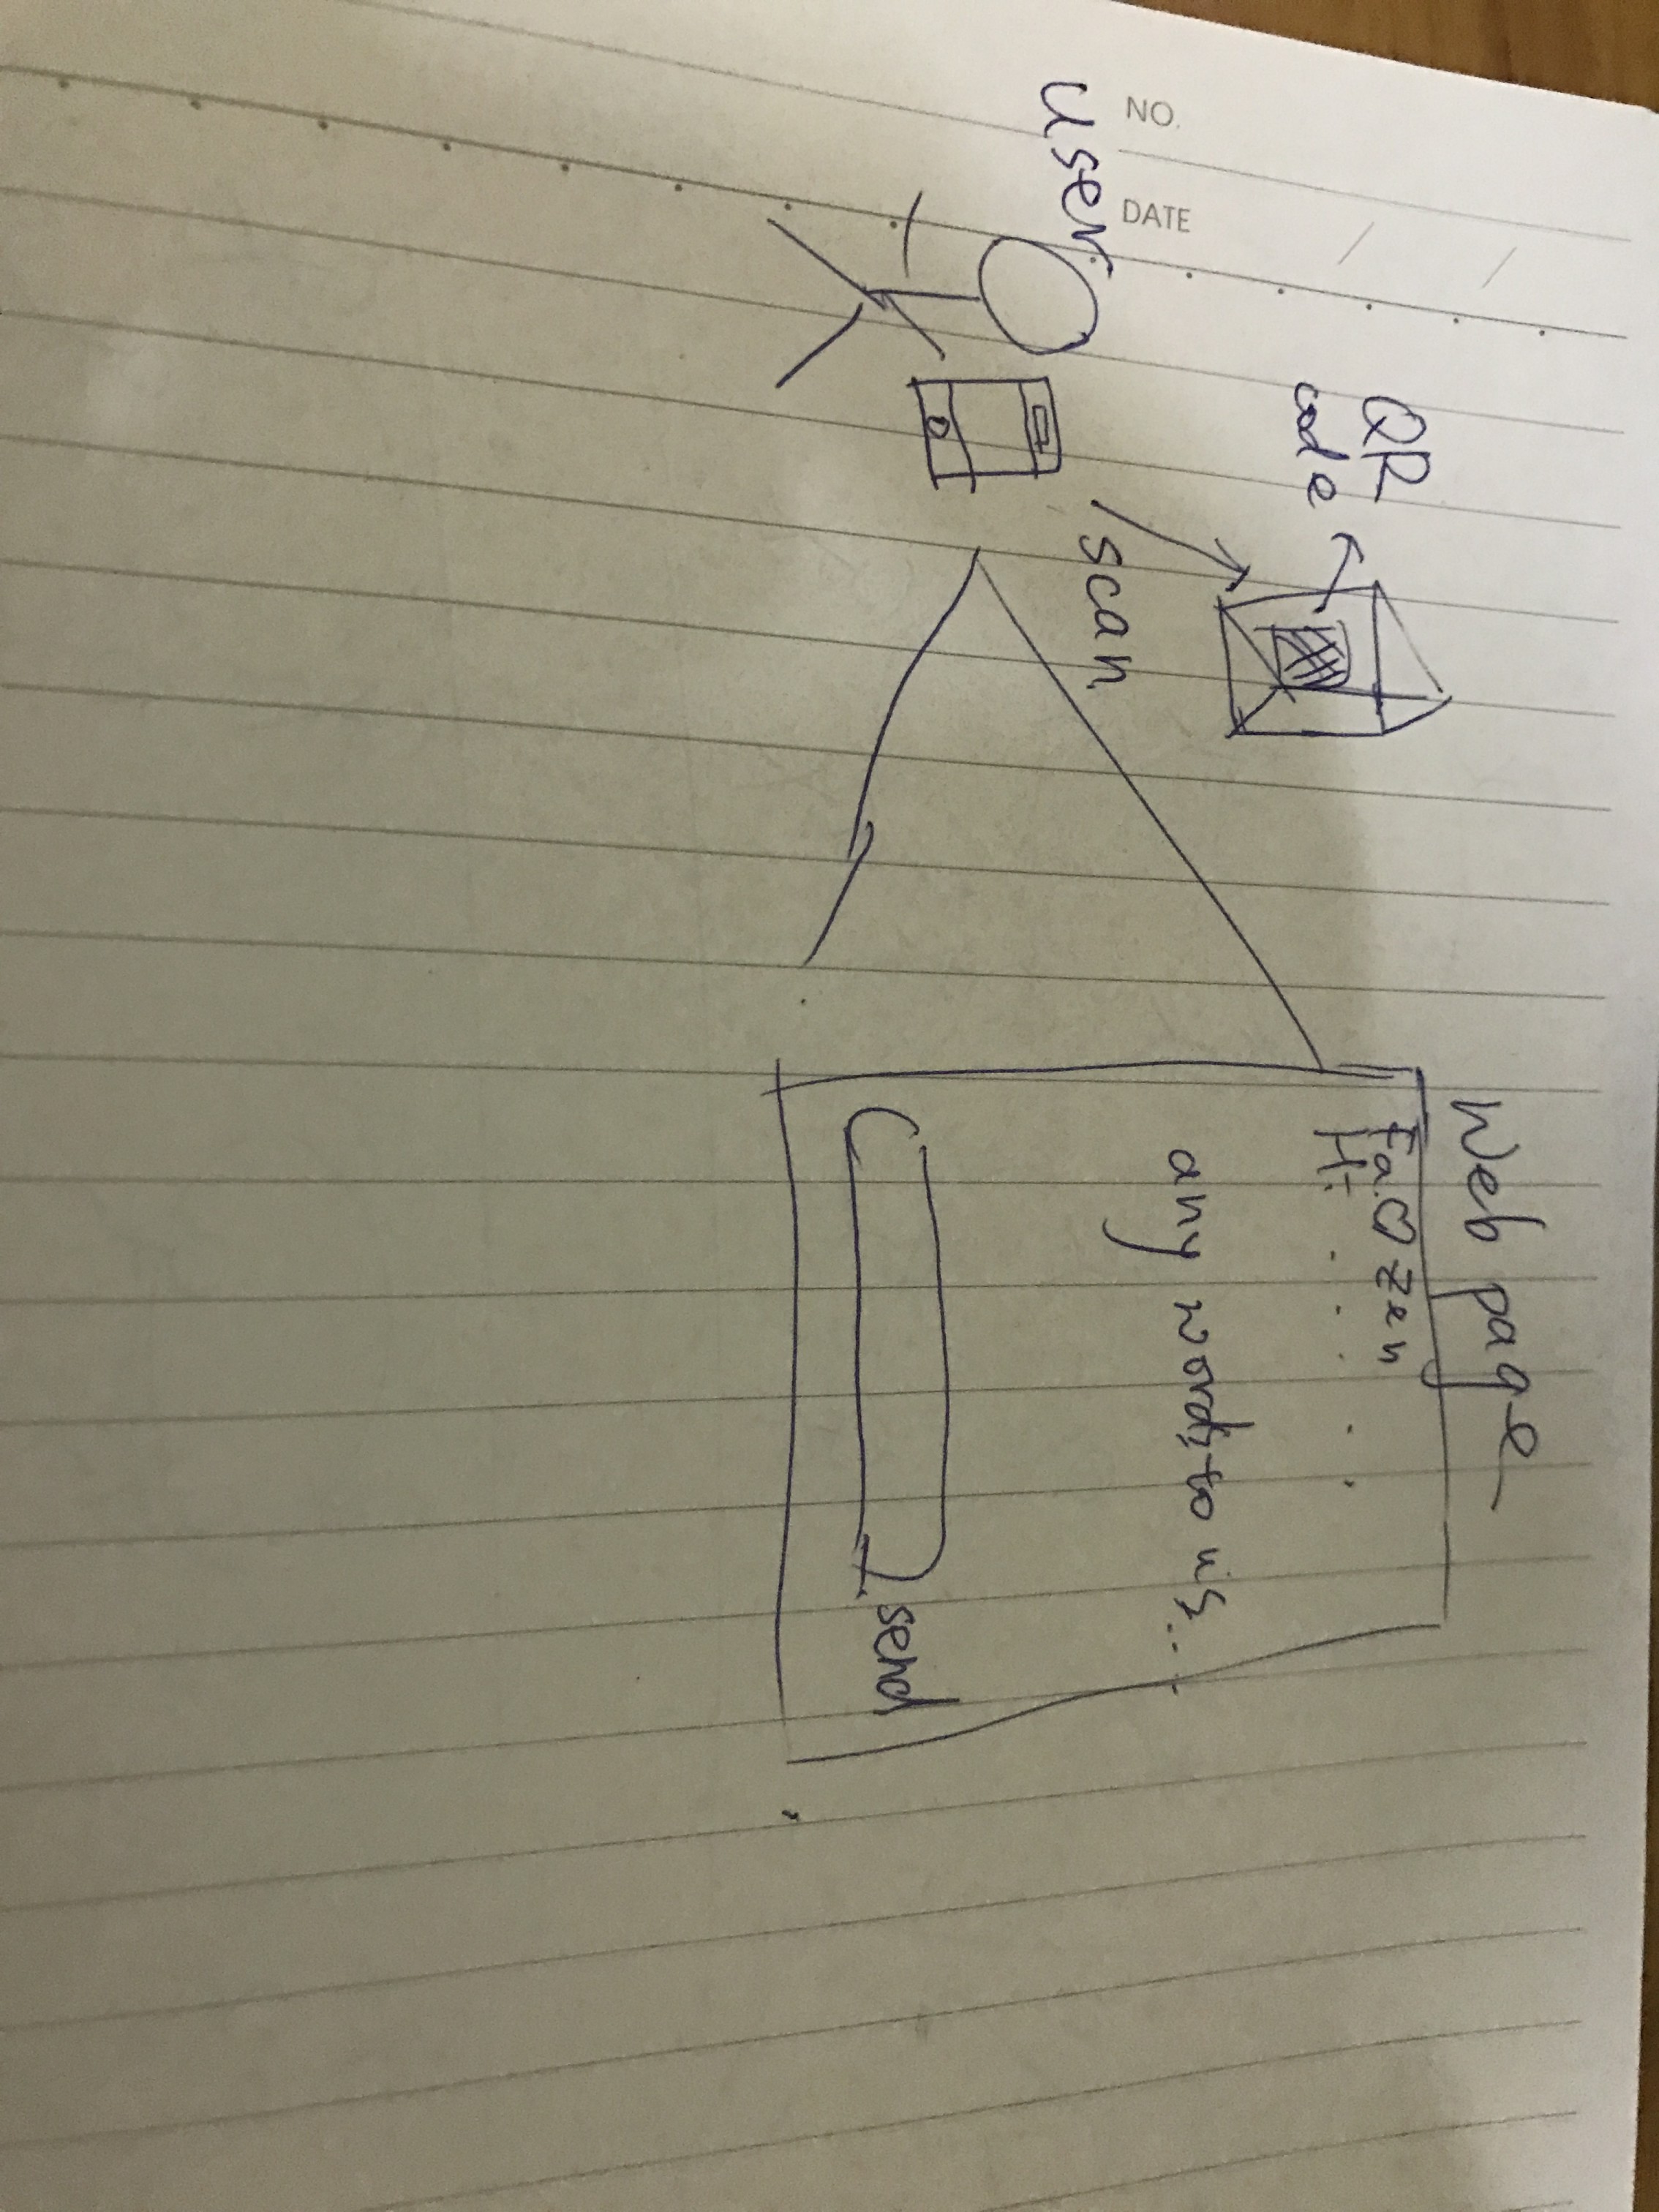 NO.
DATE
user
QR
code
scan
Web page
Fa ♡ zen
Hi.....
any words to us....
send